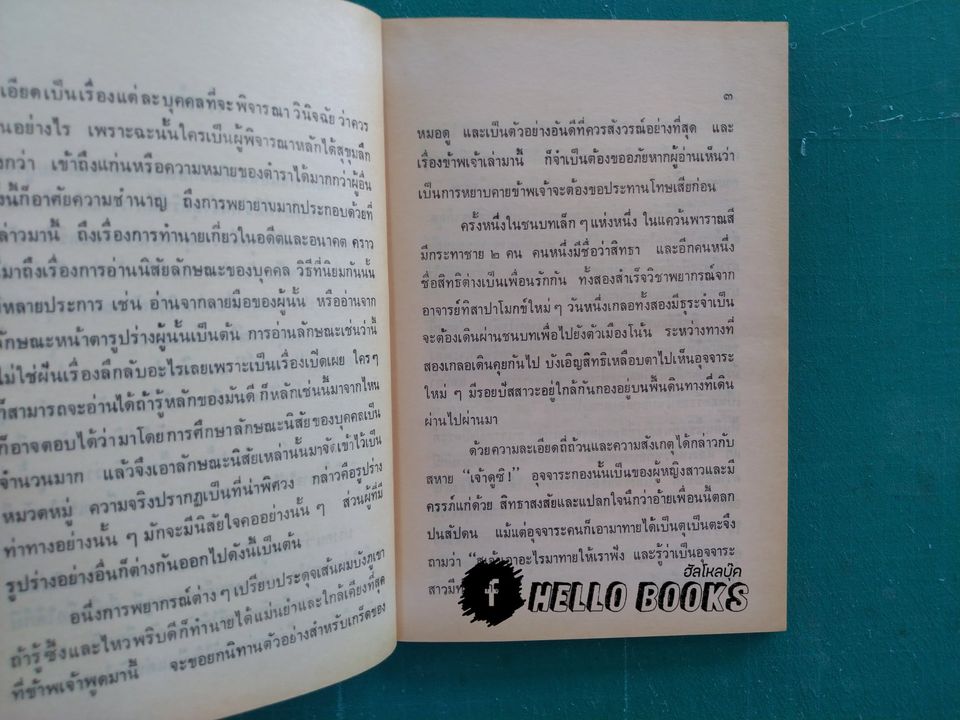 เอียดเป็นเรื่องแต่ละบุคคลที่จะพิจารณา วินิจฉัย ว่าควร
นอย่างไร เพราะฉะนั้นใครเป็นผู้พิจารณาหลักได้สุขุมลึก
งกว่า เข้าถึงแก่นหรือความหมายของตำราได้มากกว่าผู้อื่น
งนี้ก็อาศัยความชำนาญ ถึงการพยายามมากประกอบด้วยที่
ล่าวมานี้ ถึงเรื่องการทำนายเกี่ยวในอดีตและอนาคต คราว
มาถึงเรื่องการอ่านนิสัยลักษณะของบุคคล วิธีที่นิยมกันนั้น
หลายประการ เช่น อ่านจากลายมือของผู้นั้น หรืออ่านจาก
ลักษณะหน้าตารูปร่างผู้นั้นเป็นต้น การอ่านลักษณะเช่นว่านี้
ไม่ใช่ฝันเรื่องลึกลับอะไรเลยเพราะเป็นเรื่องเปิดเผย ใครๆ
ก็สามารถจะอ่านได้ถ้ารู้หลักของมันดี ก็หลักเช่นนี้มาจากไหน
ก็อาจตอบได้ว่ามาโดยการศึกษาลักษณะนิสัยของบุคคลเป็น
จำนวนมาก แล้วจึงเอาลักษณะนิสัยเหล่านั้นมาจัดเข้าไว้เป็น
หมวดหมู่ ความจริงปรากฏเป็นที่น่าพิศวง กล่าวคือรูปร่าง
ท่าทางอย่างนั้น ๆ มักจะมีนิสัยใจคออย่างนั้น ๆ ส่วนผู้ที่มี
รูปร่างอย่างอื่นก็ต่างกันออกไปดังนี้เป็นต้น
อนึ่งการพยากรณ์ต่าง ๆ เปรียบประดุจเส้นผมบังภูเขา
ถ้ารู้ซึ้งและไหวพริบดีก็ทำนายได้แม่นยำและใกล้เคียงที่สุด
ที่ข้าพเจ้าพูดมานี้ จะขอยกนิทานตัวอย่างสำหรับเกร็ดของ
๓
หมอดู และเป็นตัวอย่างอันดีที่ควรสังวรณ์อย่างที่สุด และ
เรื่องข้าพเจ้าเล่ามานี้ ก็จำเป็นต้องขออภัยหากผู้อ่านเห็นว่า
เป็นการหยาบคายข้าพเจ้าจะต้องขอประทานโทษเสียก่อน
ครั้งหนึ่งในชนบทเล็ก ๆ แห่งหนึ่ง ในแคว้นพาราณสี
มีกระทาชาย ๒ คน คนหนึ่งมีชื่อว่าสิทธา และอีกคนหนึ่ง
ชื่อสิทธิต่างเป็นเพื่อนรักกัน ทั้งสองสำเร็จวิชาพยากรณ์จาก
อาจารย์ทิสาปาโมกข์ใหม่ ๆ วันหนึ่งเกลอทั้งสองมีธุระจำเป็น
จะต้องเดินผ่านชนบทเพื่อไปยังตัวเมืองโน้น ระหว่างทางที่
สองเกลอเดินคุยกันไป บังเอิญสิทธิเหลือบตาไปเห็นอุจจาระ
ใหม่ ๆ มีรอยปัสสาวะอยู่ใกล้กันกองอยู่บนพื้นดินทางที่เดิน
ผ่านไปผ่านมา
ด้วยความละเอียดถี่ถ้วนและความสังเกตุได้กล่าวกับ
สหาย “เจ้าดูซิ !” อุจจาระกองนั้นเป็นของผู้หญิงสาวและมี
ครรภ์แก่ด้วย สิทธาสงสัยและแปลกใจนึกว่าอ้ายเพื่อนนี้ตลก
ปนสัปดน แม้แต่อุจจาระคนก็เอามาทายได้เป็นตุเป็นตะจึง
ถามว่า “ เอาอะไรมาทายให้เราฟัง และรู้ว่าเป็นอุจจาระ
สาวมี
ฮัลโหลบุ๊ค
f HELLO BOOKS